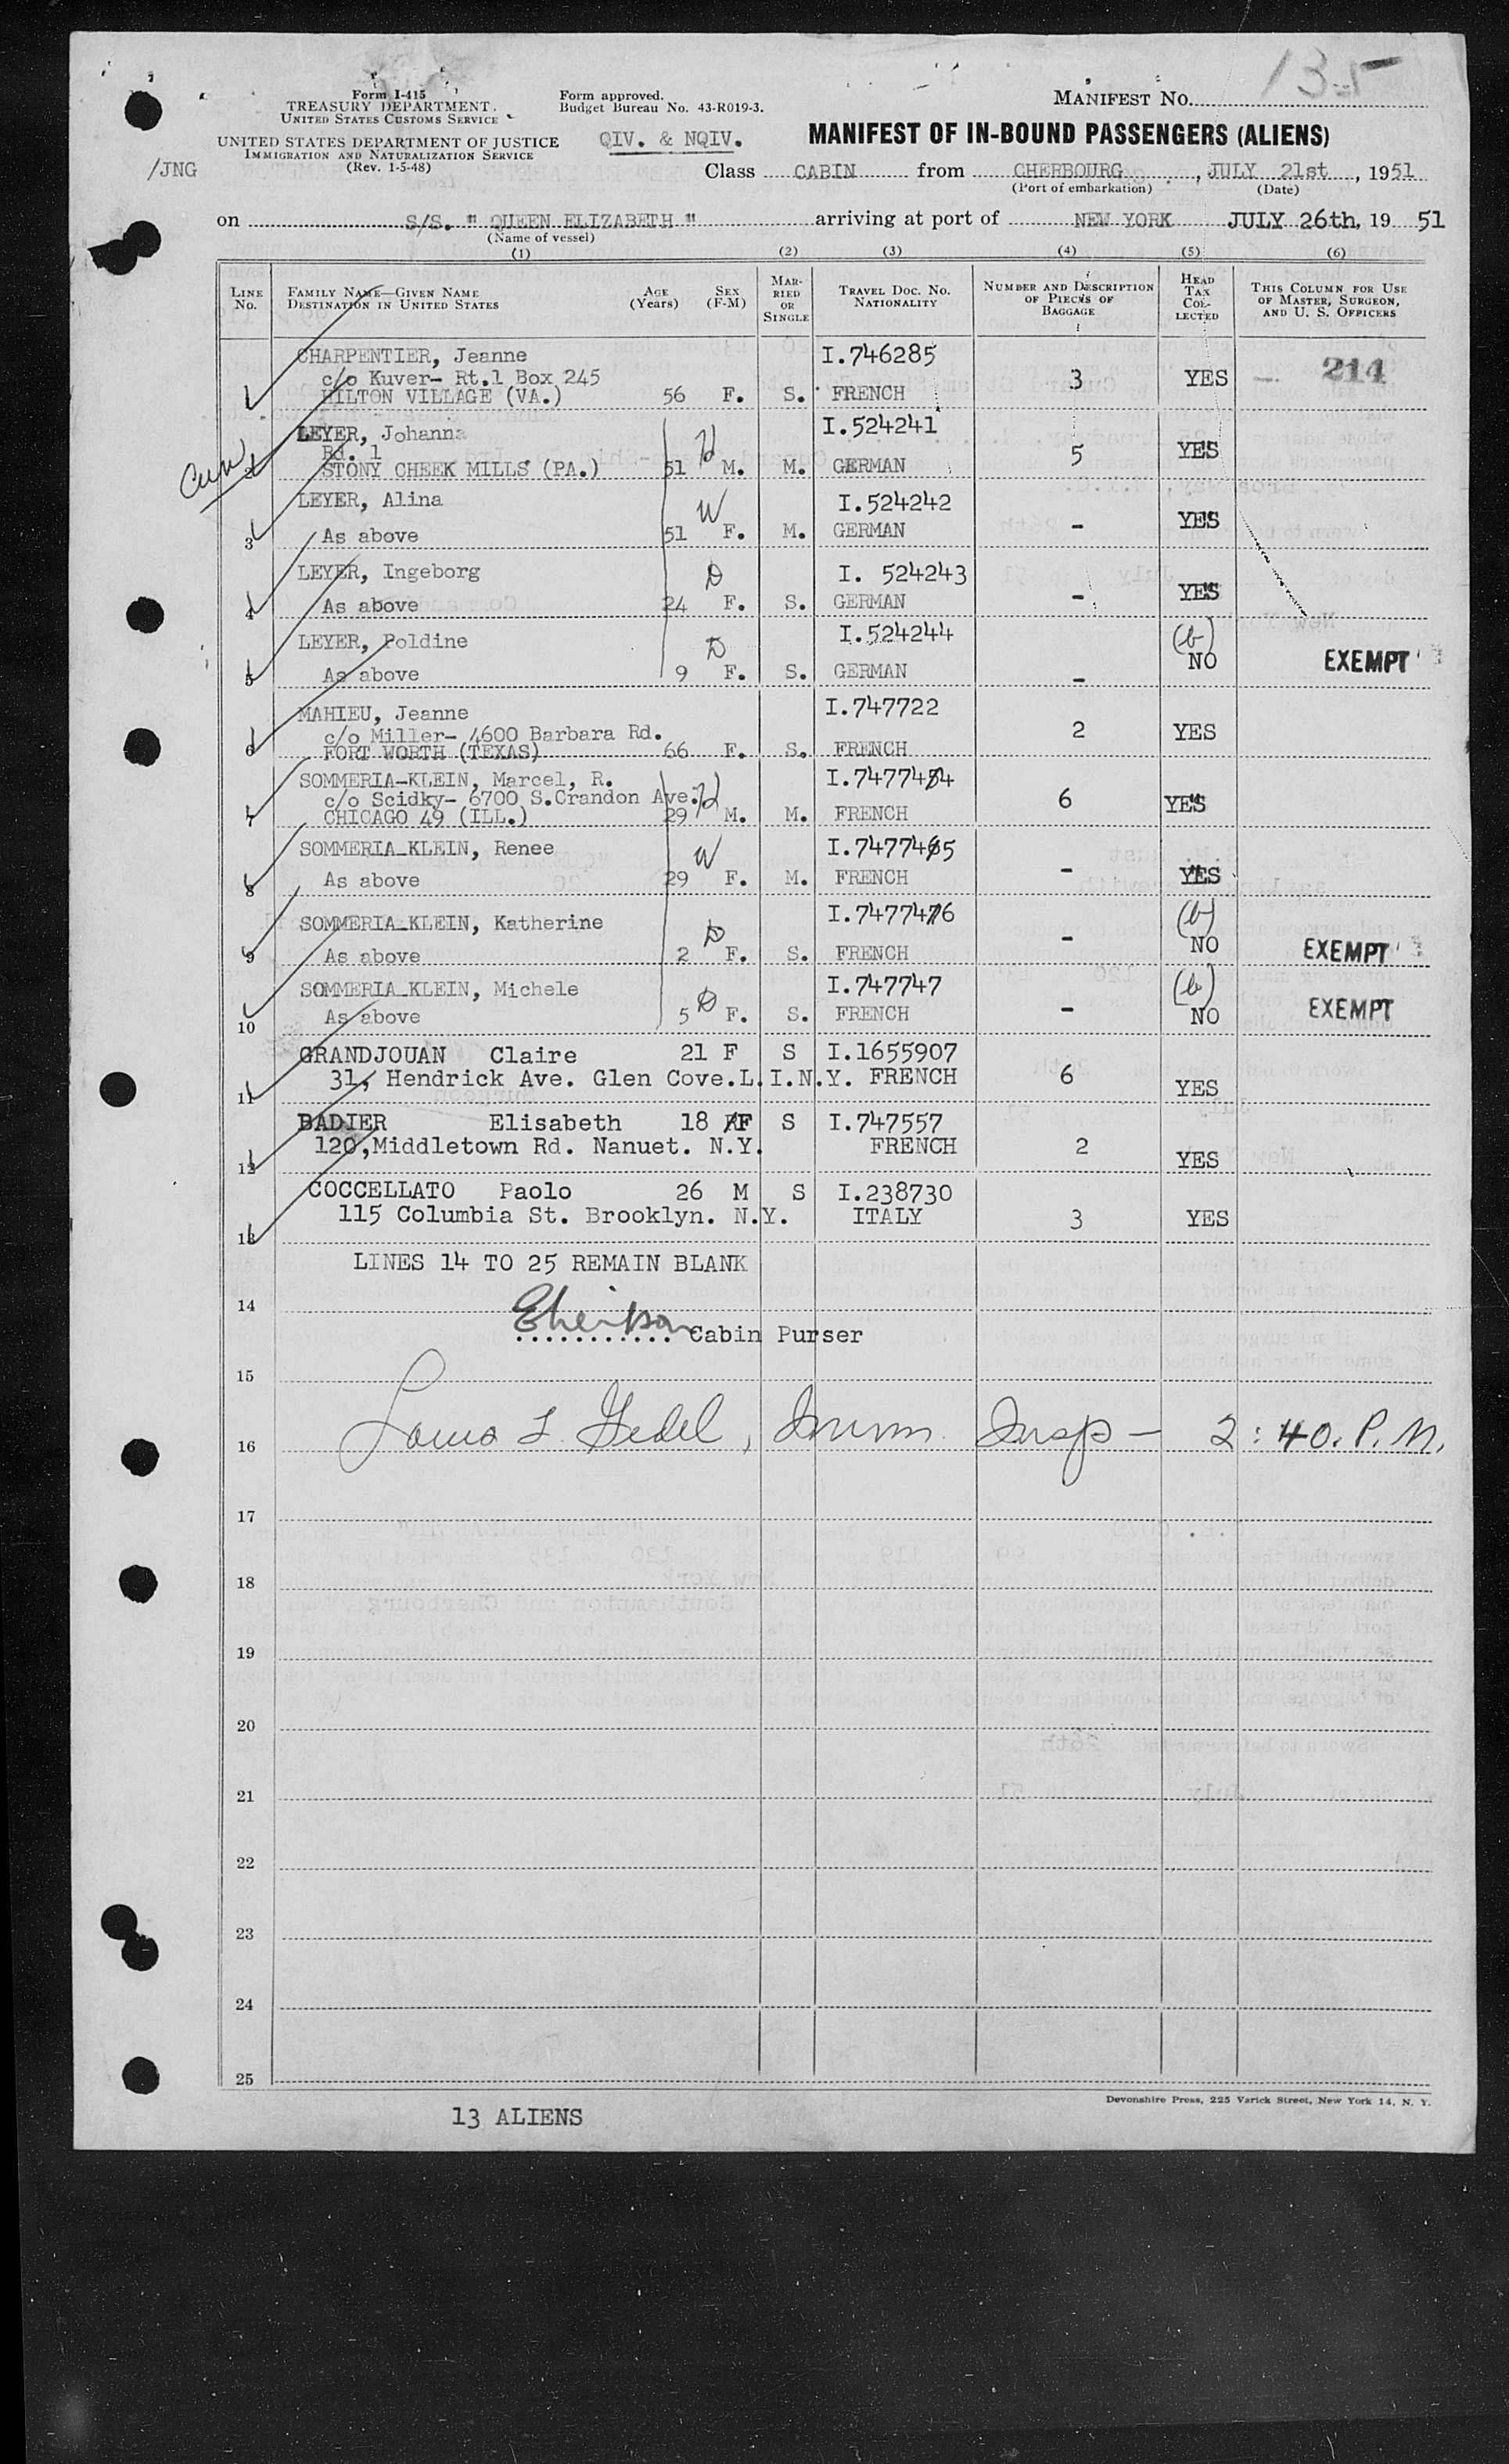 Form I-415
TREASURY DEPARTMENT
UNITED STATES CUSTOMS SERVICE
UNITED STATES DEPARTMENT OF JUSTICE
IMMIGRATION AND NATURALIZATION SERVICE
(Rev. 1-5-48)
/JNG
Form approved.
Budget Bureau No. 43-R019-3.
QIV. & NQIV.
MANIFEST NO. 135
MANIFEST OF IN-BOUND PASSENGERS (ALIENS)
Class CABIN from CHERBOURG, JULY 21st, 1951
(Port of embarkation) (Date)
on S/S. " QUEEN ELIZABETH " arriving at port of NEW YORK JULY 26th, 19 51
(Name of vessel)
(1) (2) (3) (4) (5) (6)
LINE NO. FAMILY NAME—GIVEN NAME DESTINATION IN UNITED STATES AGE (Years) SEX (F-M) MARRIED OR SINGLE TRAVEL DOC. NO. NATIONALITY NUMBER AND DESCRIPTION OF PIECES OF BAGGAGE HEAD TAX COLLECTED THIS COLUMN FOR USE OF MASTER, SURGEON, AND U. S. OFFICERS
CHARPENTIER, Jeanne I.746285
c/o Kuver- Rt.1 Box 245 3 YES 214
HILTON VILLAGE (VA.) 56 F. S. FRENCH
LEYER, Johanna I.524241
Rd. 1 H 5 YES
STONY CHEEK MILLS (PA.) 51 M. M. GERMAN
LEYER, Alina W I.524242
3 As above 51 F. M. GERMAN - YES
LEYER, Ingeborg D I. 524243
4 As above 24 F. S. GERMAN - YES
LEYER, Poldine D I.524244 (b)
5 As above 9 F. S. GERMAN - NO EXEMPT
MAHIEU, Jeanne I.747722
c/o Miller- 4600 Barbara Rd. 2 YES
6 FORT WORTH (TEXAS) 66 F. S. FRENCH
SOMMERIA-KLEIN, Marcel, R. I.747744
c/o Scidky- 6700 S.Crandon Ave. H 6 YES
7 CHICAGO 49 (ILL.) 29 M. M. FRENCH
SOMMERIA-KLEIN, Renee W I.747745
8 As above 29 F. M. FRENCH - YES
SOMMERIA-KLEIN, Katherine D I.747746 (b)
9 As above 2 F. S. FRENCH - NO EXEMPT
SOMMERIA-KLEIN, Michele D I.747747 (b)
10 As above 5 F. S. FRENCH - NO EXEMPT
GRANDJOUAN Claire 21 F S I.1655907
11 31, Hendrick Ave. Glen Cove.L.I.N.Y. FRENCH 6 YES
BADIER Elisabeth 18 F S I.747557
12 120,Middletown Rd. Nanuet. N.Y. FRENCH 2 YES
COCCELLATO Paolo 26 M S I.238730
13 115 Columbia St. Brooklyn. N.Y. ITALY 3 YES
LINES 14 TO 25 REMAIN BLANK
14
Cabin Purser
15
16 Louis F. Gedel, Imm. Insp — 2:40. P.M.
17
18
19
20
21
22
23
24
25
Devonshire Press, 225 Varick Street, New York 14, N. Y.
13 ALIENS